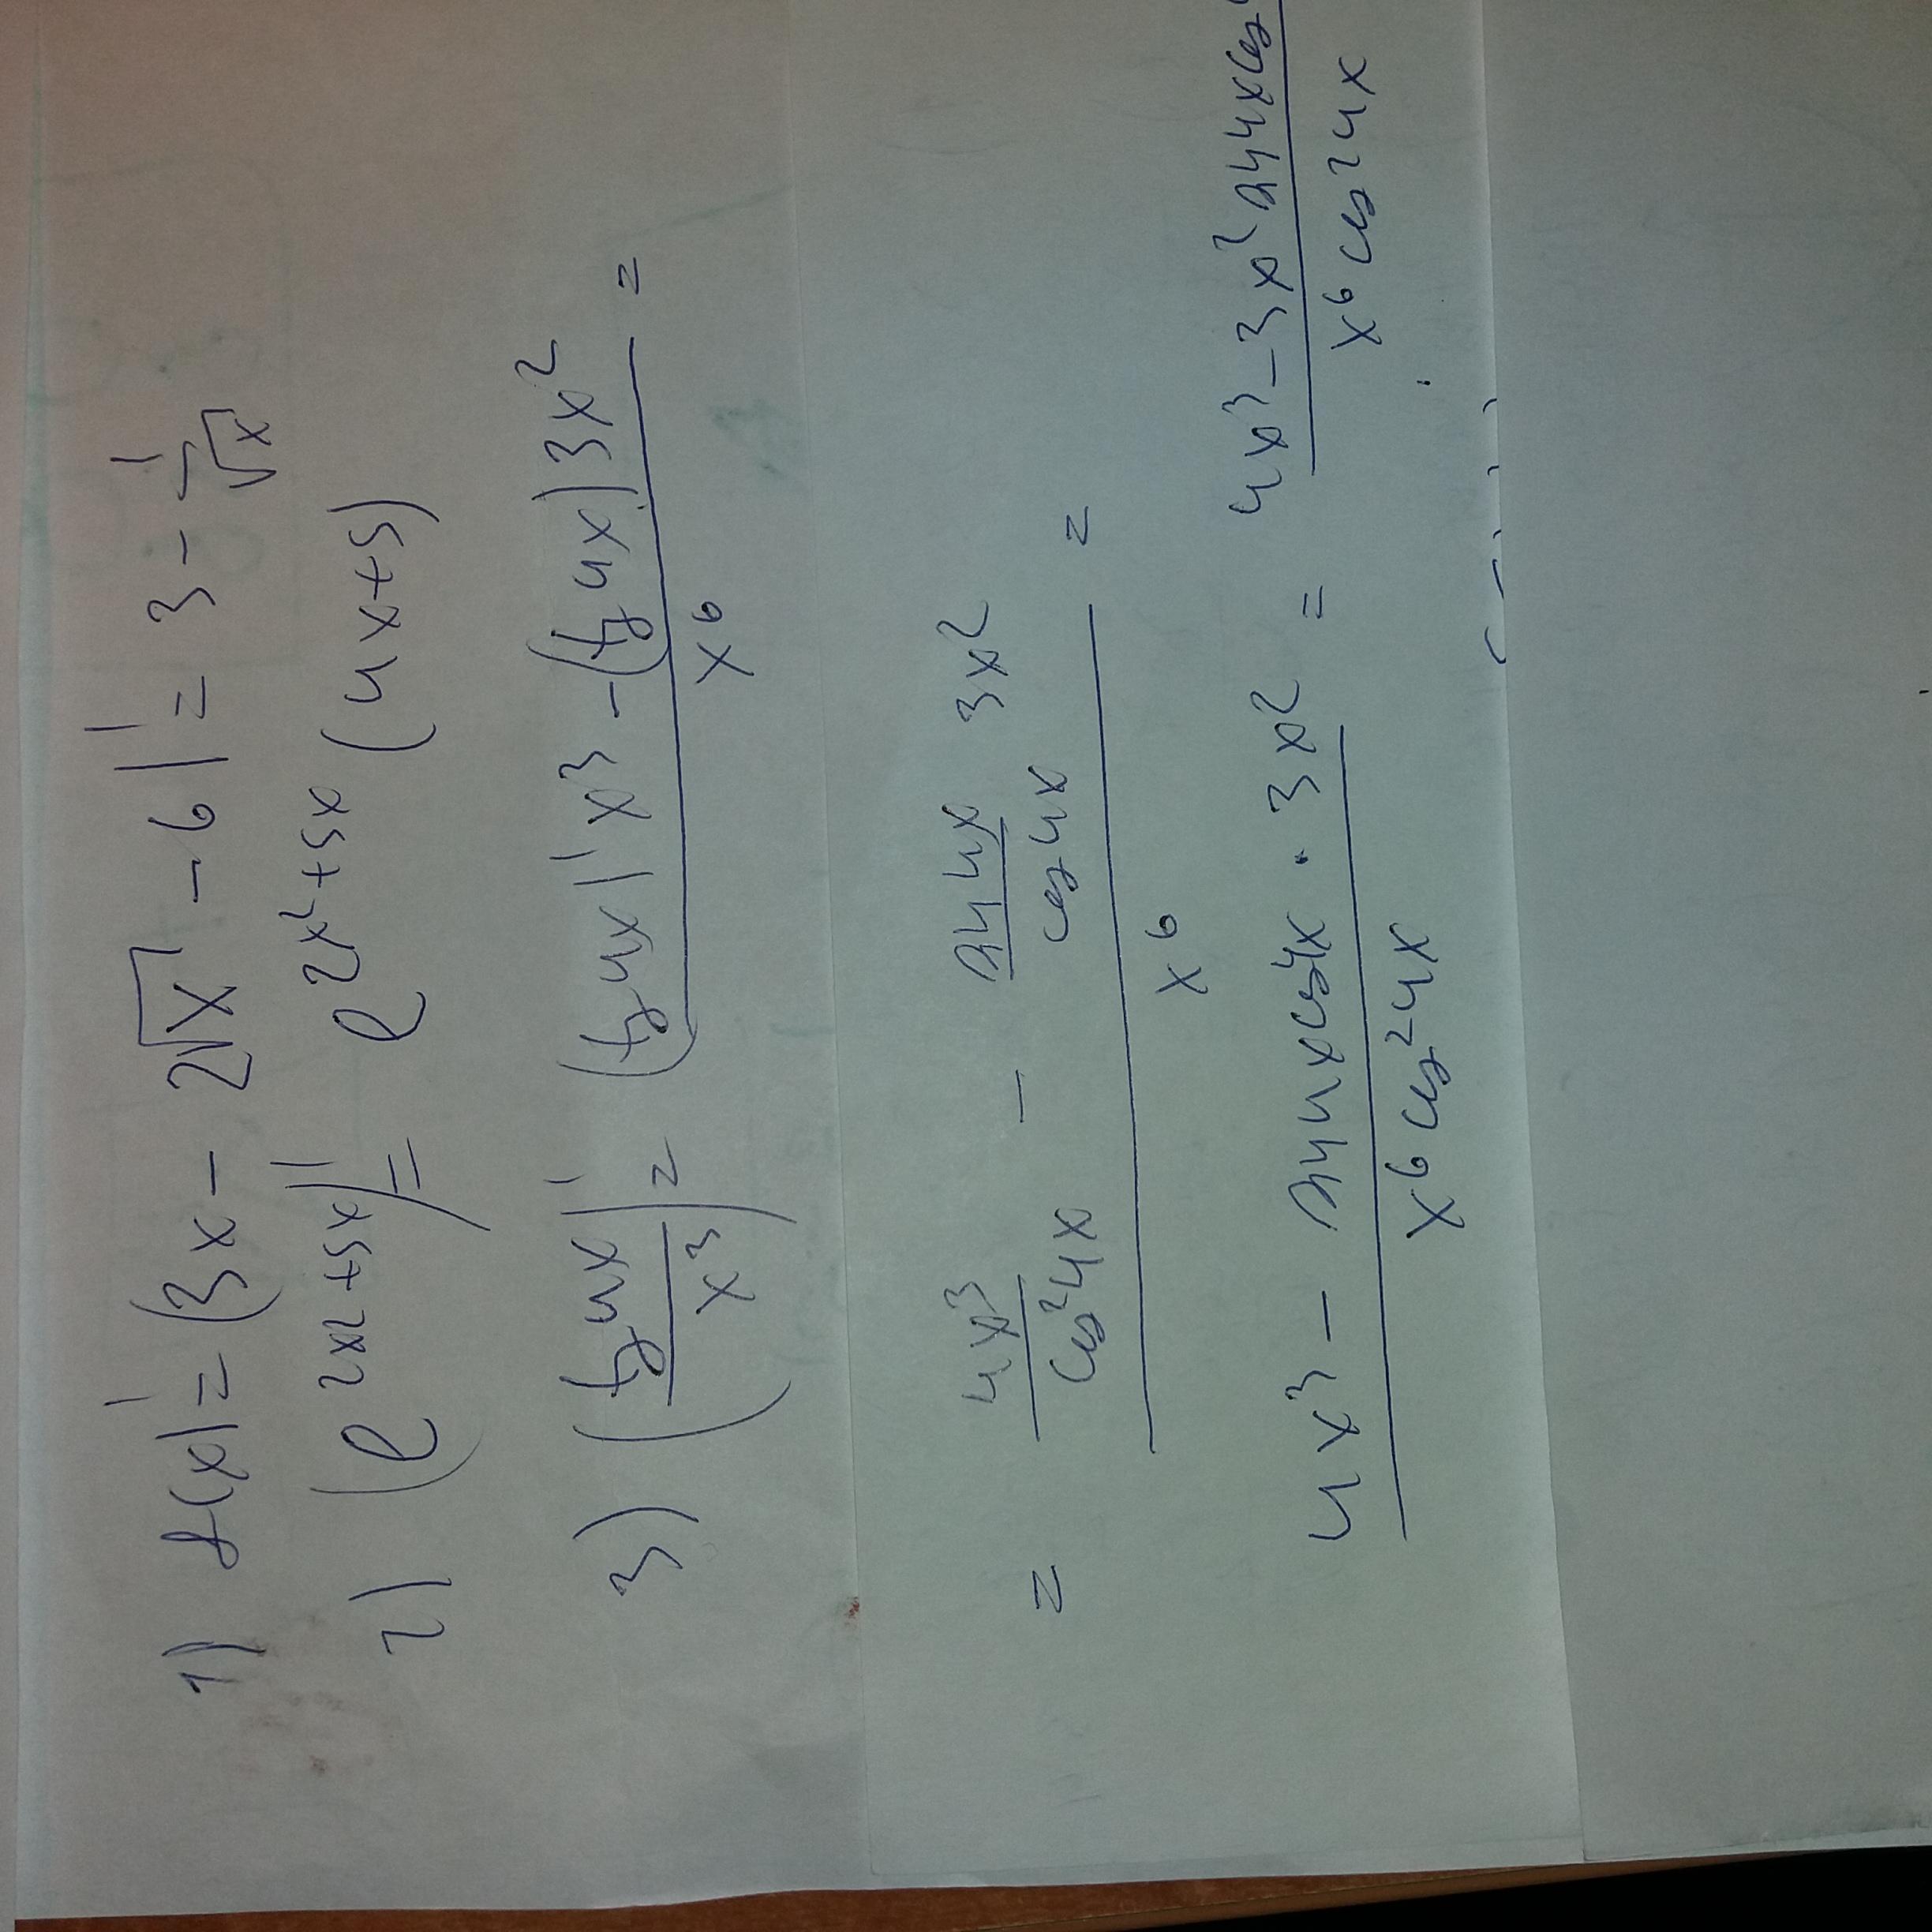 1) f(x)' = (3x - 2√x - 6)' = 3 - 1/√x
2) (e^(2x²+5x))' = e^(2x²+5x) (4x+5)
3) (tg4x/x³)' = ((tg4x)'x³ - (tg4x)3x²)/x⁶ =
= (4x³/cos²4x - sin4x/cos4x 3x²)/x⁶ =
(4x³ - sin4xcos4x · 3x²)/(x⁶cos²4x) = (4x³-3x²sin4xcos)/(x⁶cos²4x)